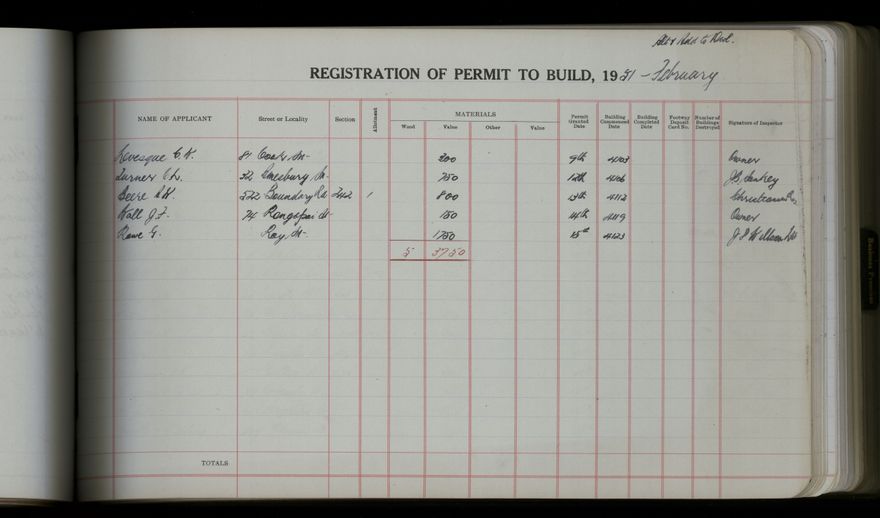 Alt & Add to Dwl.
REGISTRATION OF PERMIT TO BUILD, 1951 - February
NAME OF APPLICANT Street or Locality Section Allotment MATERIALS Permit Granted Date Building Commenced Date Building Completed Date Footway Deposit Card No. Number of Buildings Destroyed Signature of Inspector
Wood Value Other Value
Levesque C. 81 Cook St 300 9th 4103 Owner
Turner 32 St 750 12th 4106 J.G.
Beere 522 Boundary Rd 242 1 800 13th 4112
Wall J.F. 74 St 150 14th 4119 Owner
Rowe G. Roy St 1750 15th 4123 J S Wilson
5 3750
TOTALS
Business Premises